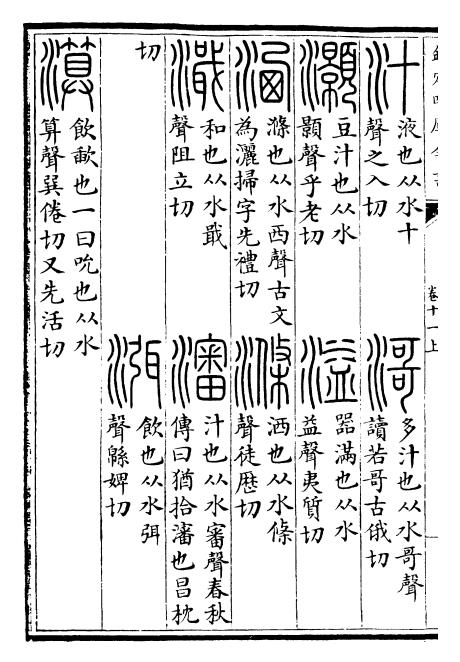 欽定四庫全書
卷十一上
汁
液也从水十
聲之入切
滒
多汁也从水哥聲
讀若哥古俄切
灝
豆汁也从水
顥聲乎老切
溢
器滿也从水
益聲夷質切
洒
滌也从水西聲古文
為灑掃字先禮切
滌
洒也从水條
聲徒歴切
濈
和也从水戢
聲阻立切
瀋
汁也从水審聲春秋
傳曰猶拾瀋也昌枕
切
渳
飲也从水弭
聲緜婢切
㵵
飲歃也一曰吮也从水
算聲巽倦切又先活切